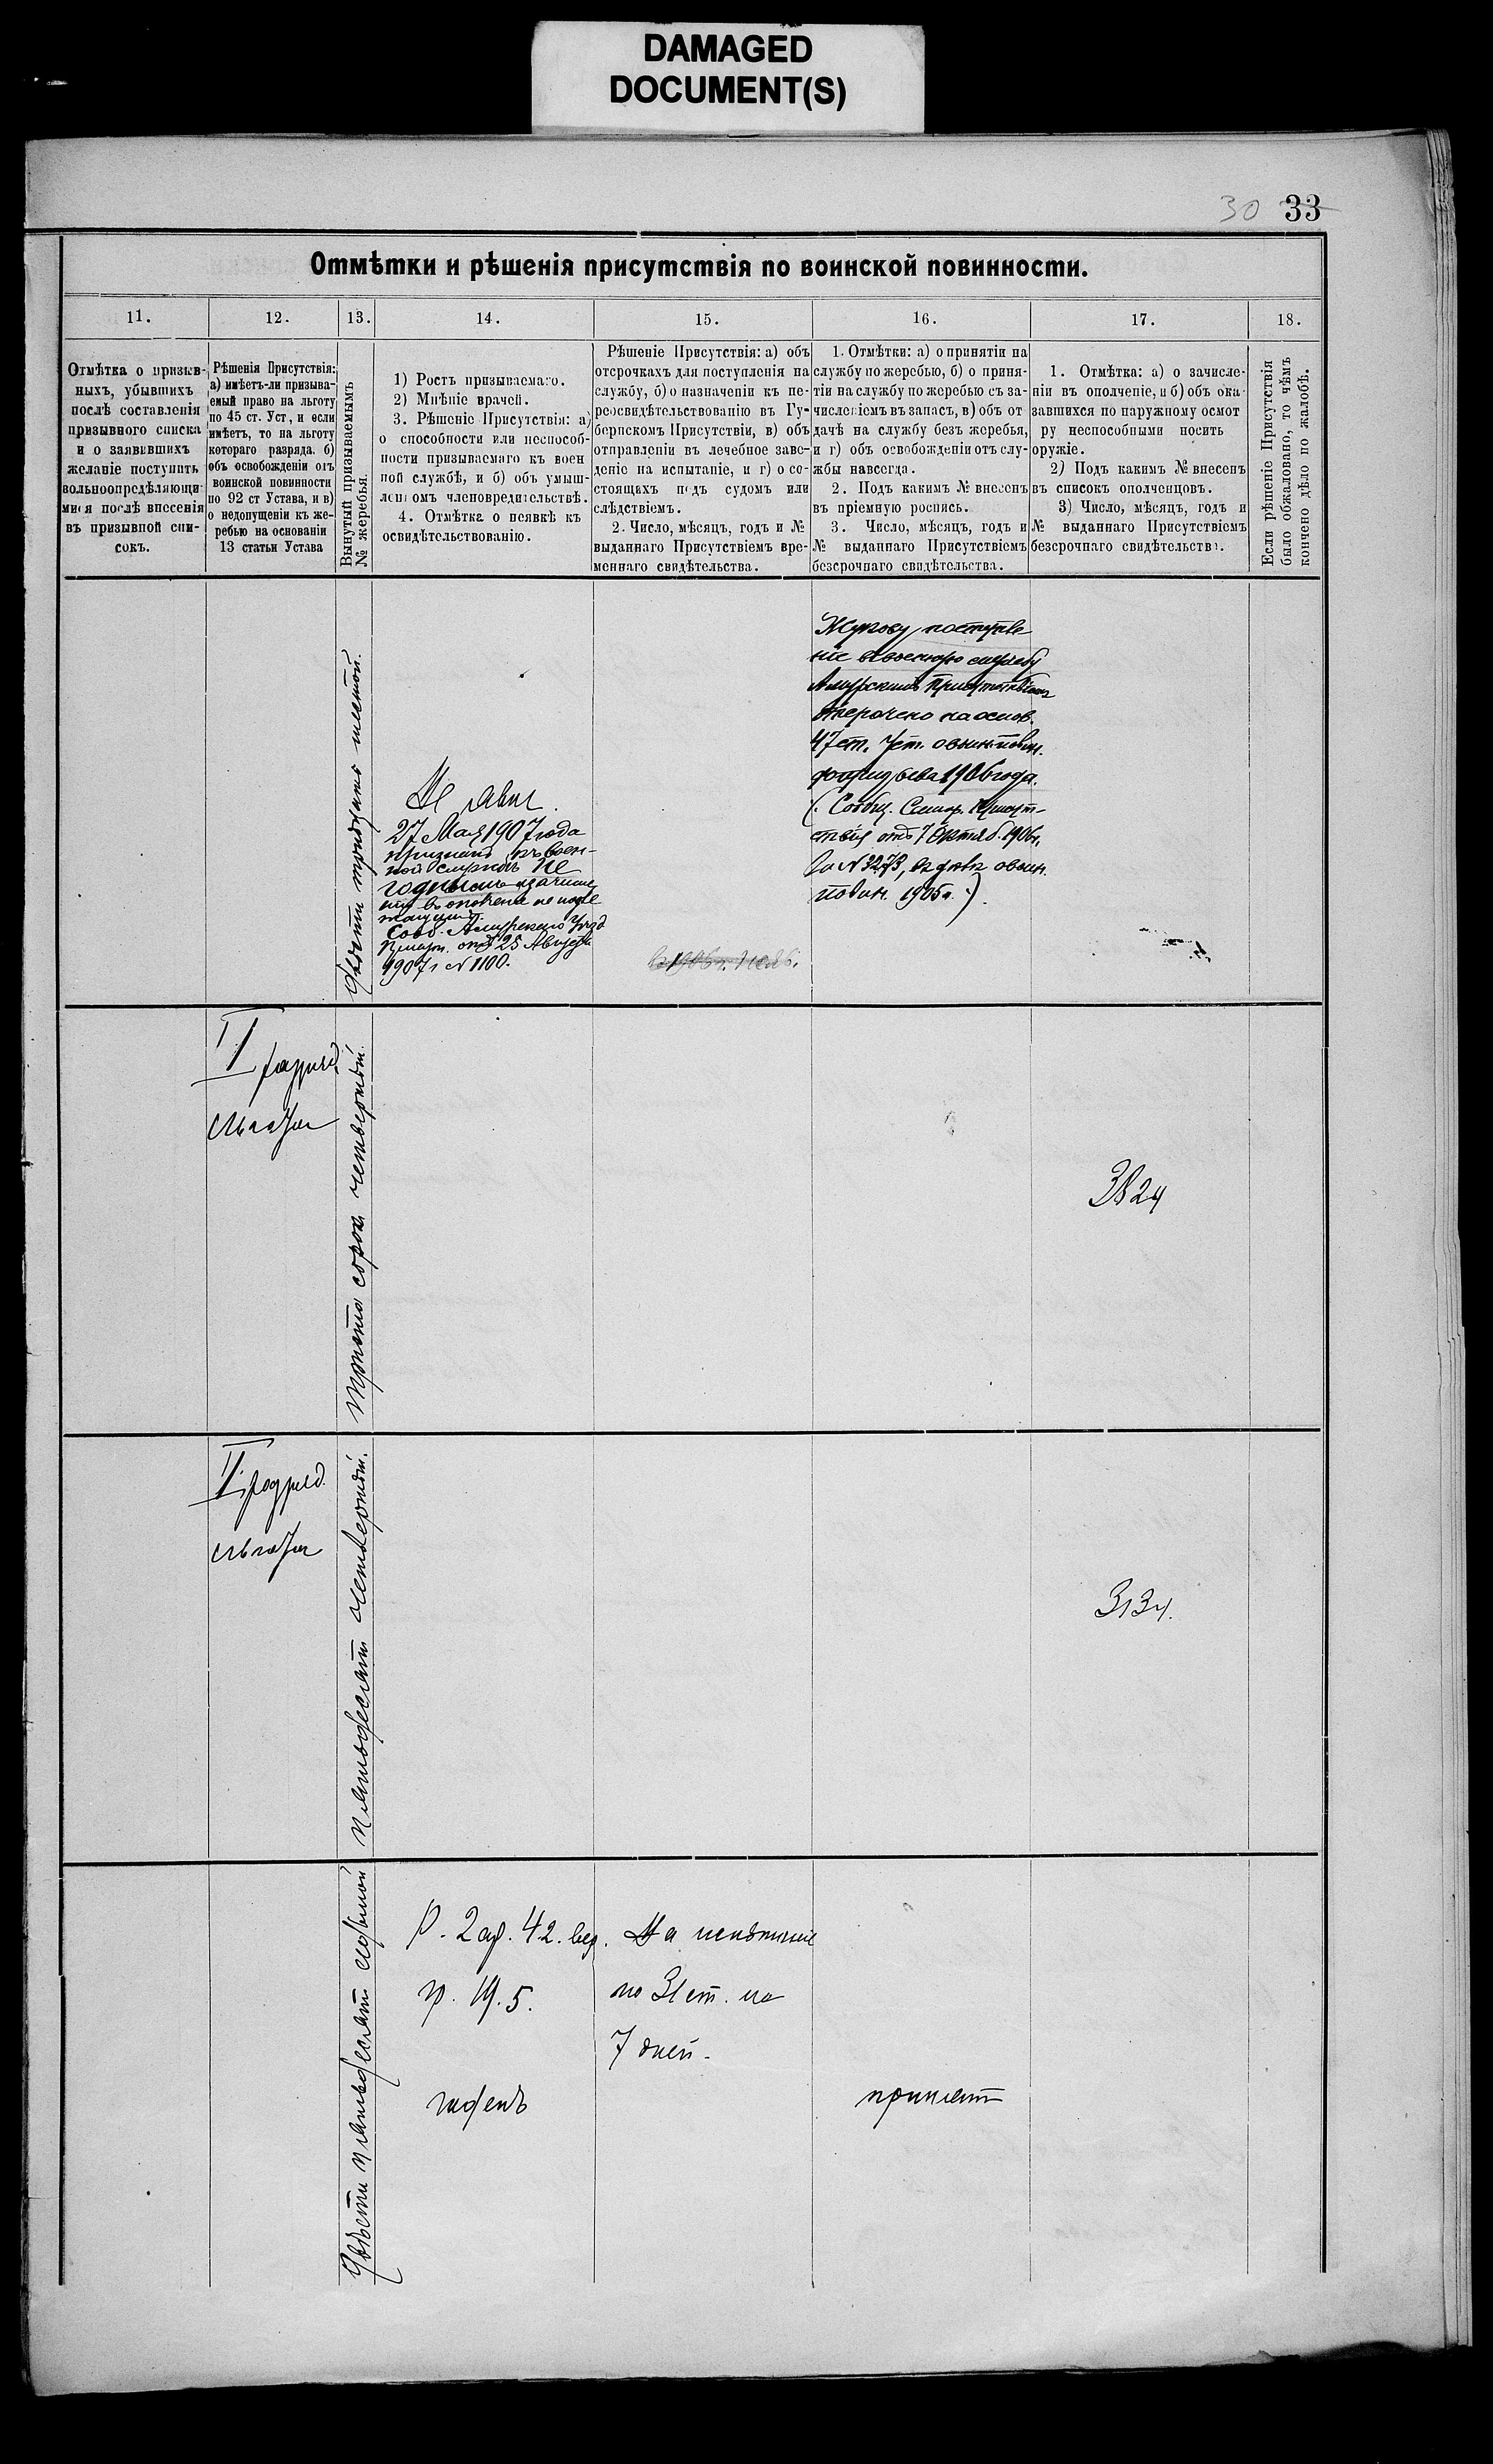 DAMAGED
DOCUMENT(S)
30 33
Отмѣтки и рѣшенія присутствія по воинской повинности.
11. 12. 13. 14. 15. 16. 17. 18.
Отмѣтка о призыв-
ныхъ, убывшихъ
послѣ составленія
призывного списка
и о заявившихъ
желаніе поступить
вольноопредѣляющи-
мися послѣ внесенія
въ призывной спи-
сокъ.
Рѣшенія Присутствія:
а) имѣетъ-ли призыва-
емый право на льготу
по 45 ст. Уст, и если
имѣетъ, то на льготу
котораго разряда. б)
объ освобожденіи отъ
воинской повинности
по 92 ст Устава, и в)
о недопущеніи къ же-
ребью на основаніи
13 статьи Устава
Вынутый призываемымъ
№ жеребья.
1) Ростъ призываемаго.
2) Мнѣніе врачей.
3. Рѣшеніе Присутствія: а)
о способности или неспособ-
ности призываемаго къ воен
ной службѣ, и б) объ умыш-
ленномъ членовредительствѣ.
4. Отмѣтка о неявкѣ къ
освидѣтельствованію.
Рѣшеніе Присутствія: а) объ
отсрочкахъ для поступленія на
службу, б) о назначеніи къ пе-
реосвидѣтельствованію въ Гу-
бернскомъ Присутствіи, в) объ
отправленіи въ лечебное заве-
деніе на испытаніе, и г) о со-
стоящихъ подъ судомъ или
слѣдствіемъ.
2. Число, мѣсяцъ, годъ и №
выданнаго Присутствіемъ вре-
меннаго свидѣтельства.
1. Отмѣтки: а) о принятіи на
службу по жеребью, б) о приня-
тіи на службу по жеребью съ за-
численіемъ въ запасъ, в) объ от
дачѣ на службу безъ жеребья,
и г) объ освобожденіи отъ слу-
жбы навсегда.
2. Подъ какимъ № внесенъ
въ пріемную роспись.
3. Число, мѣсяцъ, годъ и
№ выданнаго Присутствіемъ
безсрочнаго свидѣтельства.
1. Отмѣтка: а) о зачисле-
ніи въ ополченіе, и б) объ ока-
завшихся по наружному осмот
ру неспособными носить
оружіе.
2) Подъ какимъ № внесенъ
въ списокъ ополченцовъ.
3) Число, мѣсяцъ, годъ и
№ выданнаго Присутствіемъ
безсрочнаго свидѣтельства.
Если рѣшеніе Присутствія
было обжаловано, то чѣмъ
кончено дѣло по жалобѣ.
двѣсти тридцать шестой.
Не явил.
27 Мая 1907 года
признанъ къ воен-
ной службѣ не
годнымъ и зачисле
нію въ ополченіе не подле
жащимъ.
Сооб. Амурскаго Уѣзд
25 Августа
1907 г № 1100.
в 1906 г. неяв.
Жукову поступле
ніе въ военную службу
Амурскимъ Присутствіемъ
отсрочено на основ.
47 ст. Уст. о воин. повин.
до призыва 1906 года.
(Сообщ. Присут-
ствія отъ 7 Октяб. 1906 г.
за № 3273, въ дѣлѣ о воин.
повин. 1905 г.).
II разряд.
льготы
триста сорокъ четвертый.
3824
II разряд.
льготы
пятьдесятъ четвертый.
3134.
двѣсти пятьдесятъ седьмой
Р. 2 ар. 4 2. вер.
гр. 19.5.
годенъ
На испытаніе
по 31 ст. на
7 дней.
принятъ